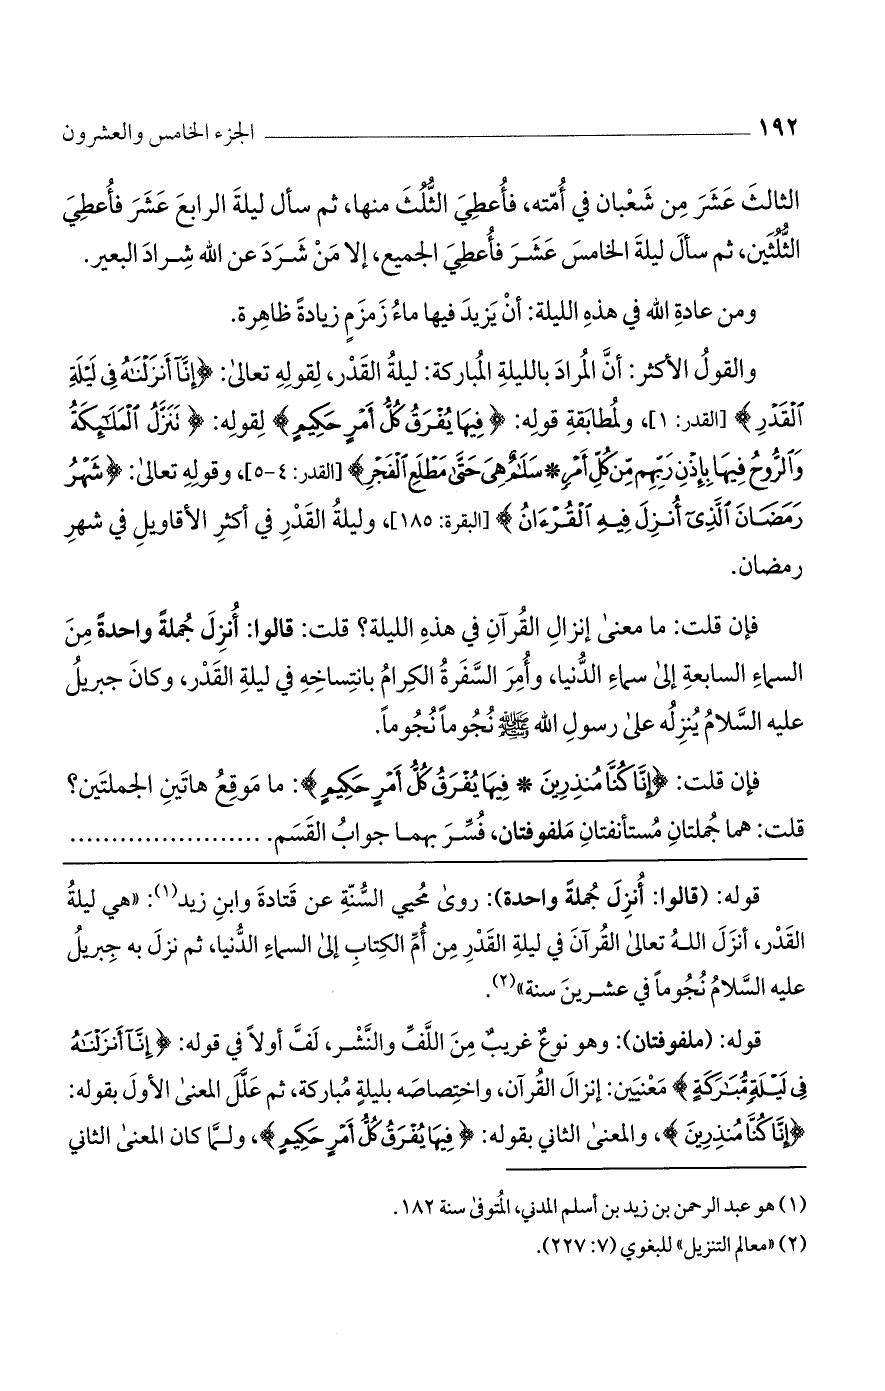 ١٩٢ ــــــــــــــــــــــــــــــ الجزء الخامس والعشرون
الثالثَ عَشَرَ مِن شَعْبان في أُمّته، فأُعطِيَ الثُّلُثَ منها، ثم سأل ليلةَ الرابعَ عَشَرَ فأُعطِيَ
الثُّلُثَين، ثم سألَ ليلةَ الخامسَ عَشَرَ فأُعطِيَ الجميع، إلا مَنْ شَرَدَ عن الله شِرادَ البعير.
ومن عادةِ الله في هذهِ الليلة: أنْ يَزيدَ فيها ماءُ زَمزَمٍ زيادةً ظاهِرة.
والقولُ الأكثر: أنَّ المُرادَ بالليلةِ المُباركة: ليلةُ القَدْر، لِقولِهِ تعالىٰ: ﴿إِنَّآ أَنزَلْنَٰهُ فِى لَيْلَةِ
ٱلْقَدْرِ﴾ [القدر: ١]، ولمُطابَقةِ قولِه: ﴿فِيهَا يُفْرَقُ كُلُّ أَمْرٍ حَكِيمٍ﴾ لِقولِه: ﴿تَنَزَّلُ ٱلْمَلَٰٓئِكَةُ
وَٱلرُّوحُ فِيهَا بِإِذْنِ رَبِّهِم مِّن كُلِّ أَمْرٍ * سَلَٰمٌ هِىَ حَتَّىٰ مَطْلَعِ ٱلْفَجْرِ﴾ [القدر: ٤-٥]، وقولِهِ تعالىٰ: ﴿شَهْرُ
رَمَضَانَ ٱلَّذِىٓ أُنزِلَ فِيهِ ٱلْقُرْءَانُ﴾ [البقرة: ١٨٥]، وليلةُ القَدْرِ في أكثرِ الأقاويلِ في شهرِ
رمضان.
فإن قلت: ما معنىٰ إنزالِ القُرآنِ في هذهِ الليلة؟ قلت: قالوا: أُنزِلَ جُملةً واحدةً مِنَ
السماءِ السابعةِ إلىٰ سماءِ الدُّنيا، وأُمِرَ السَّفَرةُ الكِرامُ بانتِساخِهِ في ليلةِ القَدْر، وكانَ جبريلُ
عليه السَّلامُ يُنزِلُه علىٰ رسولِ الله ﷺ نُجُوماً نُجُوماً.
فإن قلت: ﴿إِنَّا كُنَّا مُنذِرِينَ * فِيهَا يُفْرَقُ كُلُّ أَمْرٍ حَكِيمٍ﴾: ما مَوقِعُ هاتَينِ الجملتَين؟
قلت: هما جُملتانِ مُستأنفتانِ مَلفوفتان، فُسِّرَ بهما جوابُ القَسَم. .......................
قوله: (قالوا: أُنزِلَ جُملةً واحدة): روىٰ مُحيي السُّنّةِ عن قَتادةَ وابنِ زيد(١): «هي ليلةُ
القَدْر، أنزَلَ اللهُ تعالىٰ القُرآنَ في ليلةِ القَدْرِ مِن أُمِّ الكِتابِ إلىٰ السماءِ الدُّنيا، ثم نزلَ به جِبريلُ
عليه السَّلامُ نُجُوماً في عشرينَ سنة»(٢).
قوله: (ملفوفتان): وهو نوعٌ غريبٌ مِنَ اللَّفِّ والنَّشْر، لَفَّ أولاً في قوله: ﴿إِنَّآ أَنزَلْنَٰهُ
فِى لَيْلَةٍ مُّبَٰرَكَةٍ﴾ مَعْنيَين: إنزالَ القُرآن، واختِصاصَه بليلةٍ مُباركة، ثم عَلَّلَ المعنىٰ الأولَ بقوله:
﴿إِنَّا كُنَّا مُنذِرِينَ﴾، والمعنىٰ الثاني بقوله: ﴿فِيهَا يُفْرَقُ كُلُّ أَمْرٍ حَكِيمٍ﴾، ولـمَّا كان المعنىٰ الثاني
(١) هو عبد الرحمن بن زيد بن أسلم المدني، المُتوفىٰ سنة ١٨٢.
(٢) «معالم التنزيل» للبغوي (٧: ٢٢٧).